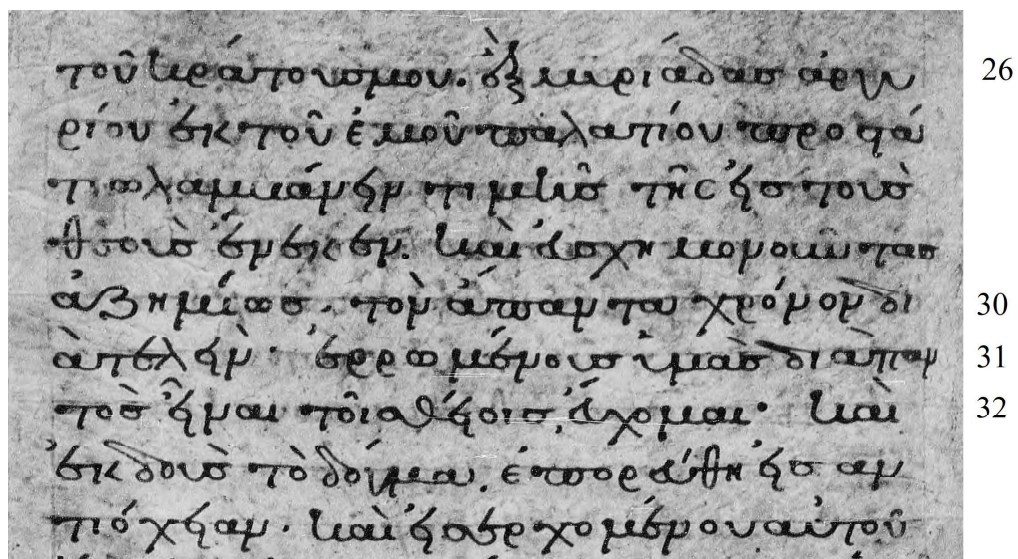 τοῦ κράτους μου. ἓξ μυριάδας ἀργυ 26
ρίου ἐκ τοῦ ἐμοῦ παλατίου προστά
τω λαμβάνειν τιμῆς τῆς εἰς τοὺς
θεοὺς ἕνεκεν. καὶ εὐσχημονοῦντας
ἀζημίως. τὸν ἅπαντα χρόνον δι 30
ατελεῖν. ἐρρωμένους ὑμᾶς διὰπαν 31
τὸς εἶναι τοῖς θεοῖς εὔχομαι. καὶ 32
ἐκδοὺς τὸ δόγμα. ἐπορεύθη εἰς ἀν
τιόχειαν. καὶ εἰσερχομένου αὐτοῦ